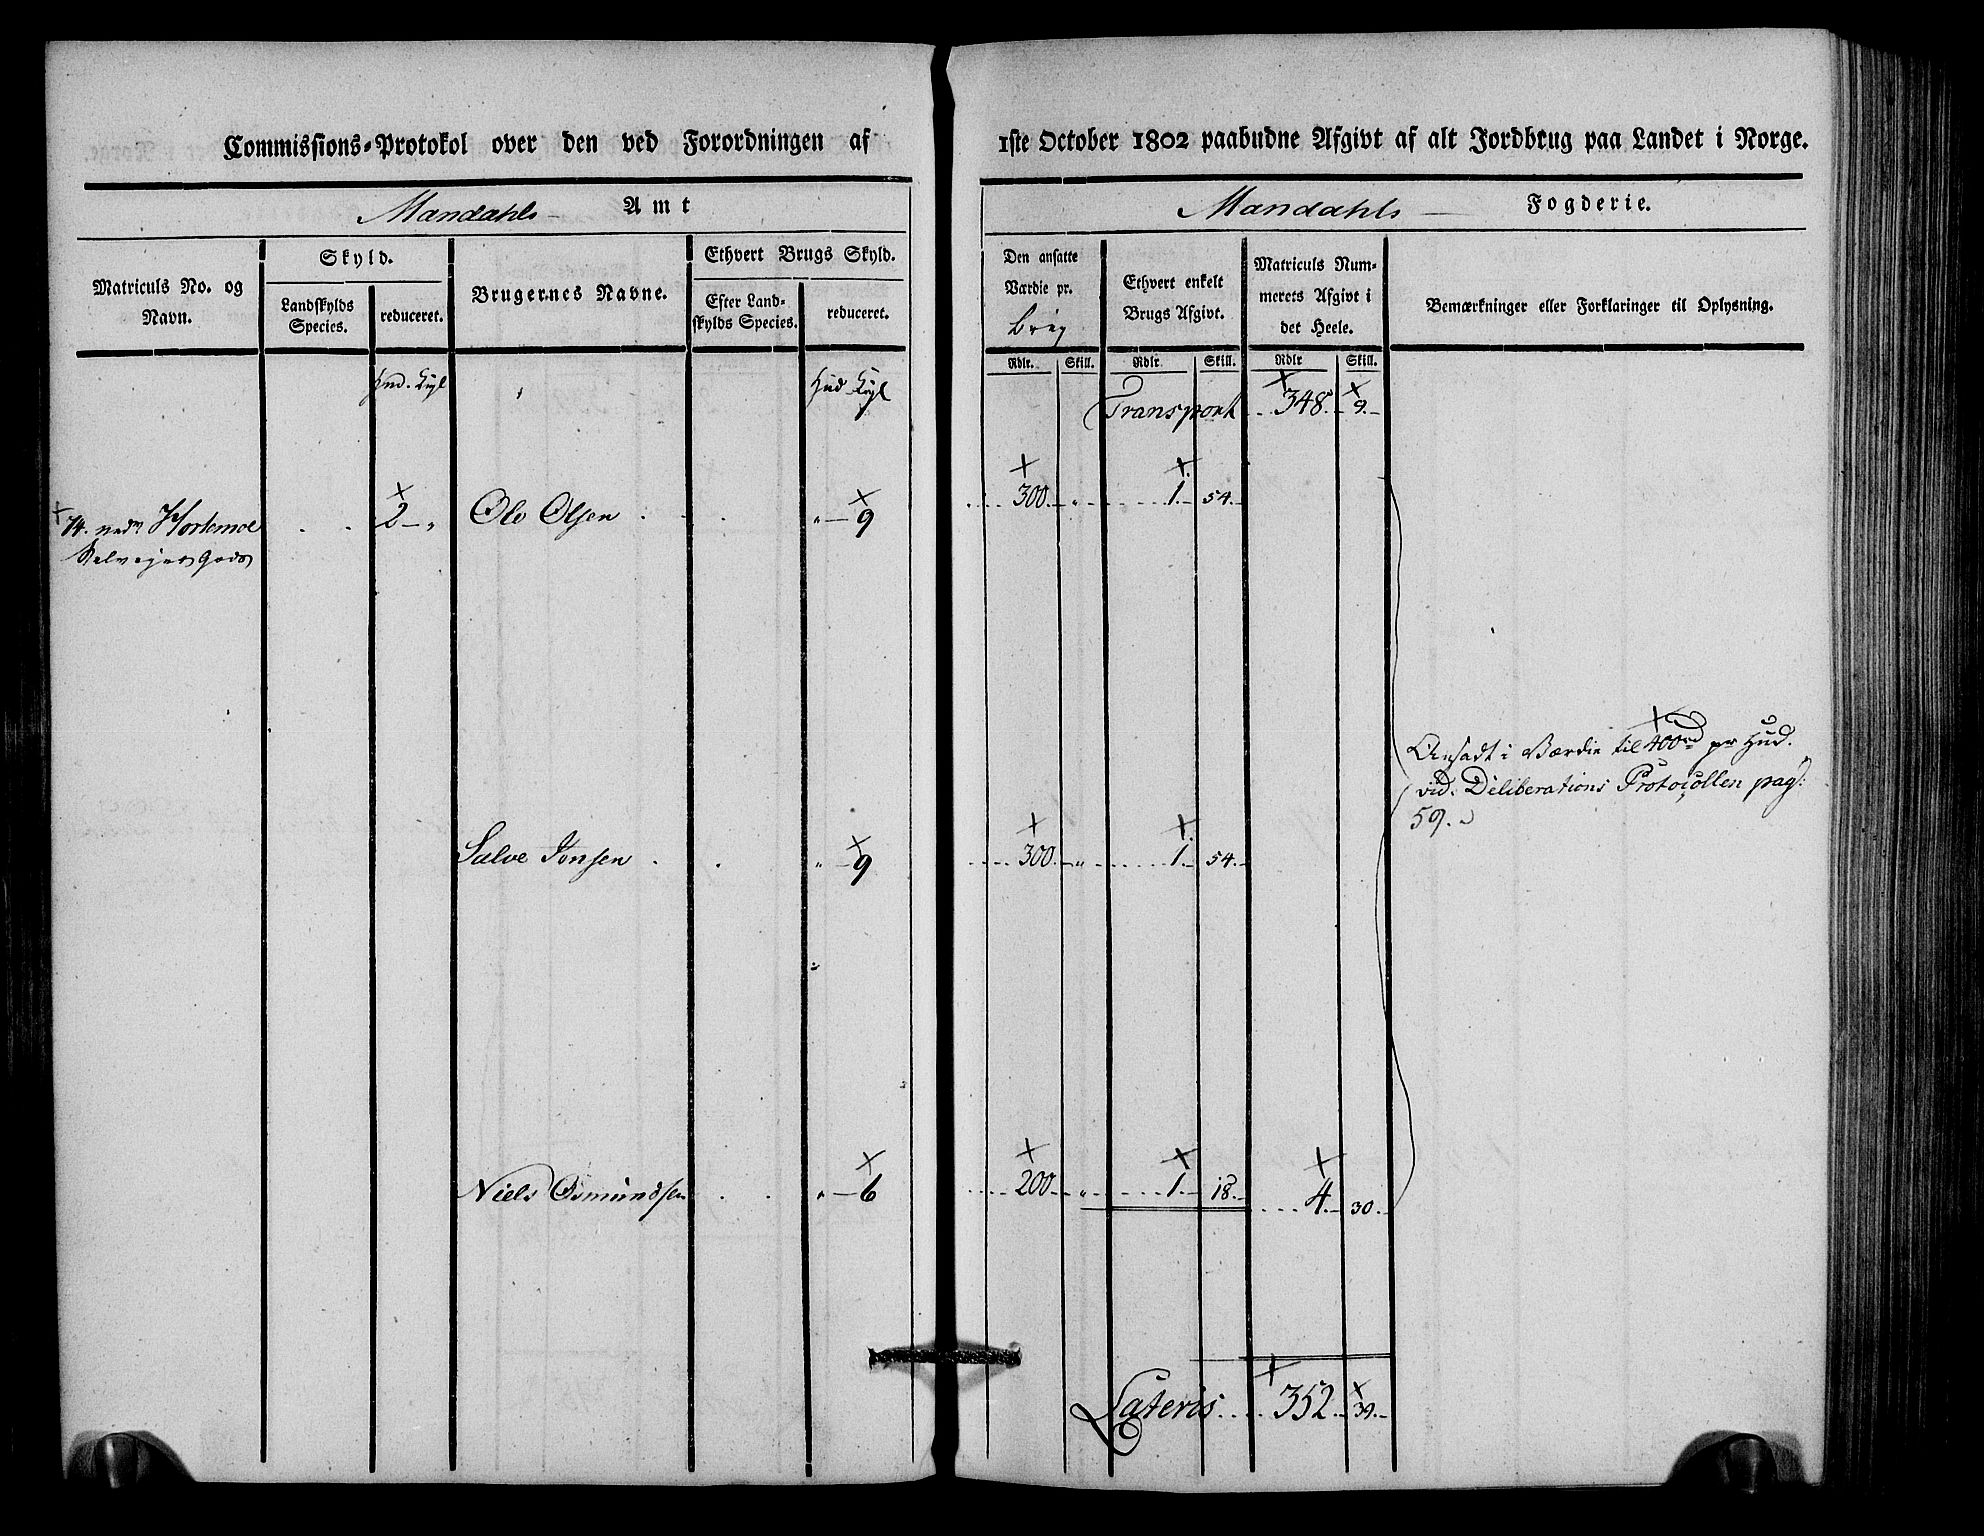 Commissions-Protokol over den ved Forordningen af 1ste October 1802 paabudne Afgivt af alt Jordbrug paa Landet i Norge.
Mandahls Amt
Mandahls Fogderie.
Matriculs No. og Navn.
Skyld.
Landskylds Species.
reduceret.
Brugernes Navne.
Ethvert Brugs Skyld.
Efter Landskylds Species.
reduceret.
Den ansatte Værdie pr. Brug
Ethvert enkelt Brugs Afgivt.
Matriculs Nummerets Afgivt i det Heele.
Bemærkninger eller Forklaringer til Oplysning.
Rdlr. Skill. Rdlr. Skill. Rdlr Skill.
Hud. Kgl Hud Kgl
Transport 348. 9.
74. nedr Hortemoe 2 – „ Ole Olsen „ – 9 300. „ 1. 54.
Selveyer Gods
Ansadt i Værdie til 400 rd pr Hud.
vid. Deliberations Protocollen pag:
59.
Salve Jonsen „ – 9 300. „ 1. 54.
Niels Osmundsen „ – 6 200. „ 1. 18. 4. 30.
Lateris 352. 39.